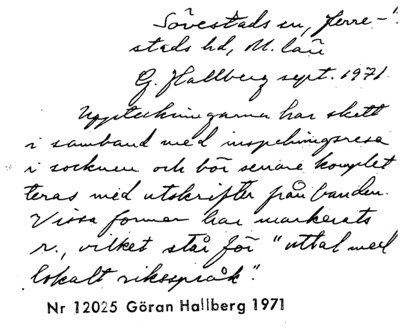 Sövestads sn, Herre-
stads hd, M. län
G. Hallberg sept. 1971.
Uppteckningarna har skett
i samband med inspelningsresa
i socknen och bör senare komplet
teras med utskrifter från banden.
Vissa former har markerats
r., vilket står för "uttal med
lokalt riksspråk".
Nr 12025 Göran Hallberg 1971